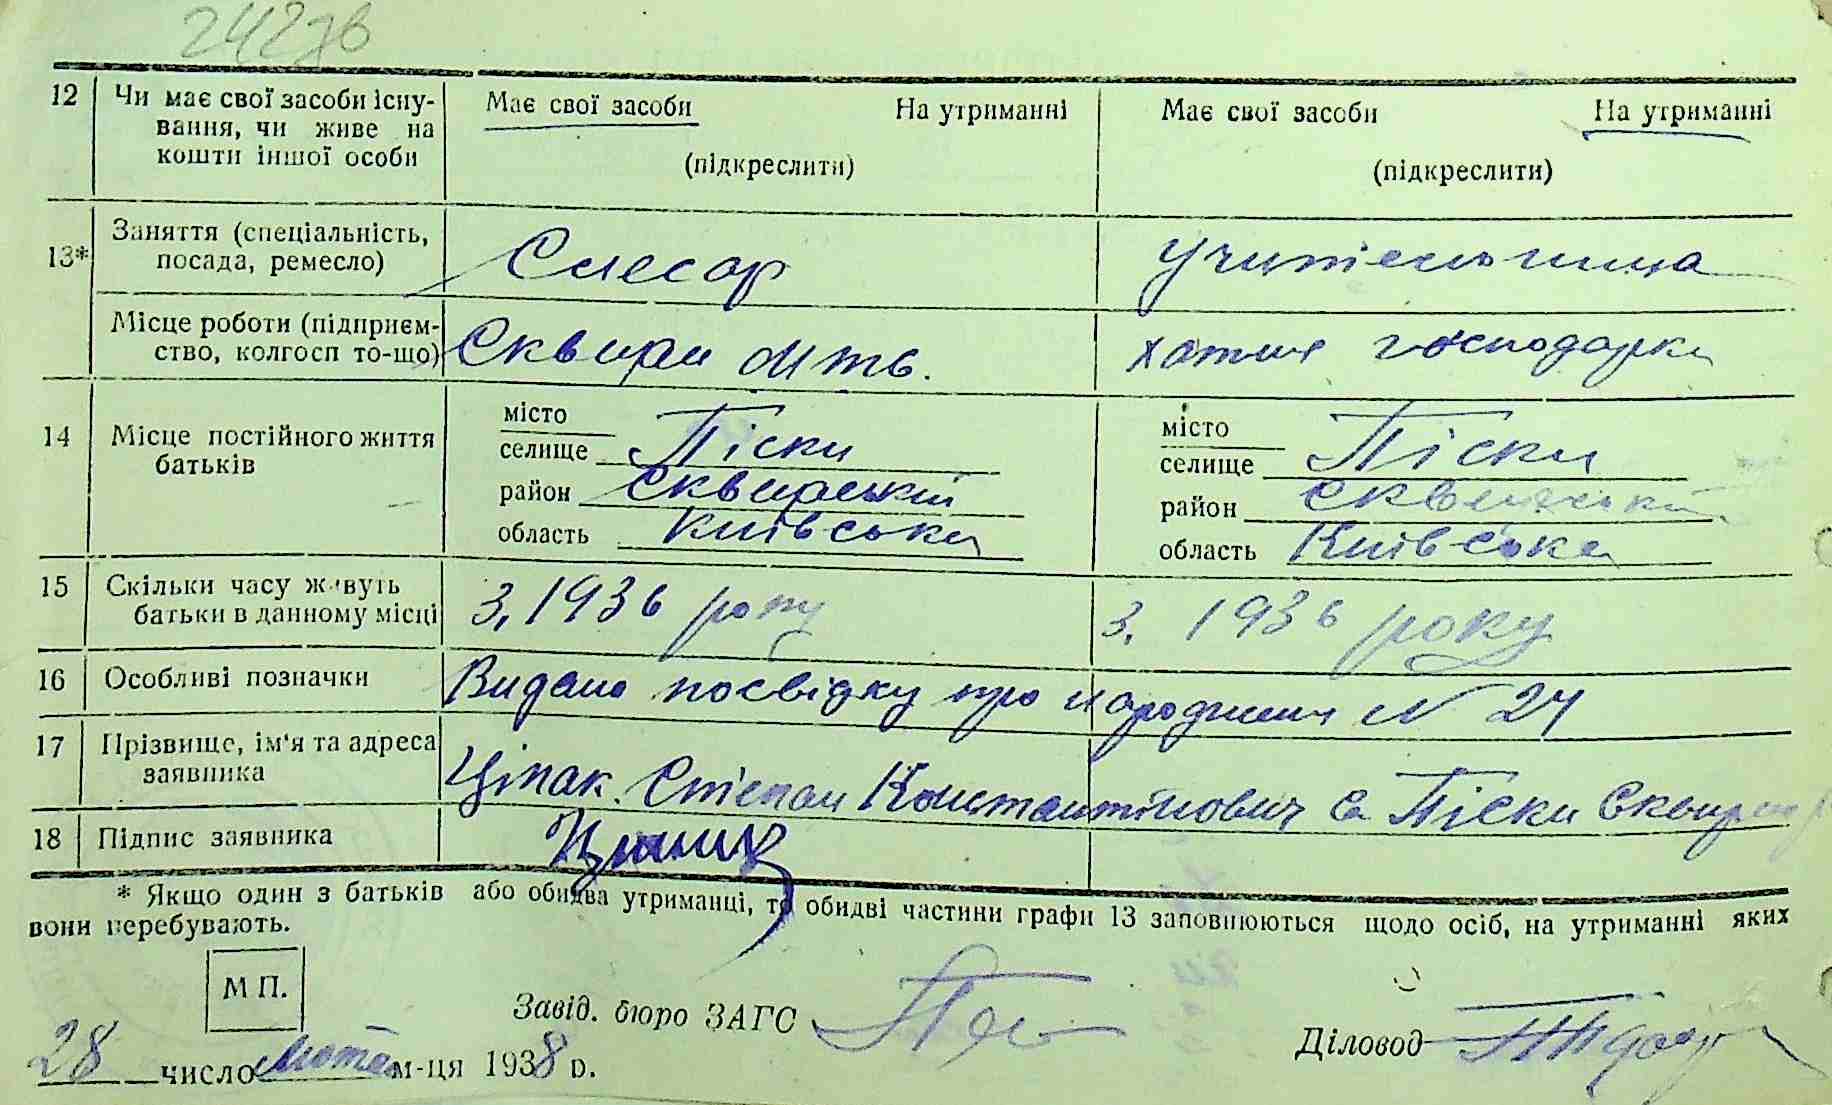 242зв
12 Чи має свої засоби існу- Має свої засоби На утриманні Має свої засоби На утриманні
вання, чи живе на
кошти іншої особи (підкреслити) (підкреслити)
13* Заняття (спеціальність, Слесар учитільница
посада, ремесло)
Місце роботи (підприєм- Сквира МТС. хатня господарка
ство, колгосп то-що)
14 Місце постійного життя місто місто
батьків селище Піски селище Піски
район Сквирський район Сквирський
область Київська область Київська
15 Скільки часу живуть З 1936 року З 1936 року
батьки в данному місці
16 Особливі позначки Видано посвідку про народження N 24
17 Прізвище, ім'я та адреса Ціпак Стіпан Константінович с. Піски
заявника
18 Підпис заявника
* Якщо один з батьків або обидва утриманці, то обидві частини графи 13 заповнюються щодо осіб, на утриманні яких
вони перебувають.
М П.
Завід. бюро ЗАГС
Діловод
28 число м-ця 1938 р.